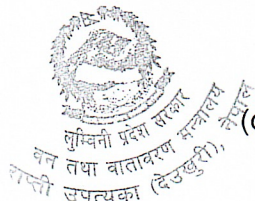 लुम्बिनी प्रदेश सरकार
वन तथा वातावरण मन्त्रालय
राप्ती उपत्यका (देउखुरी), नेपाल
(